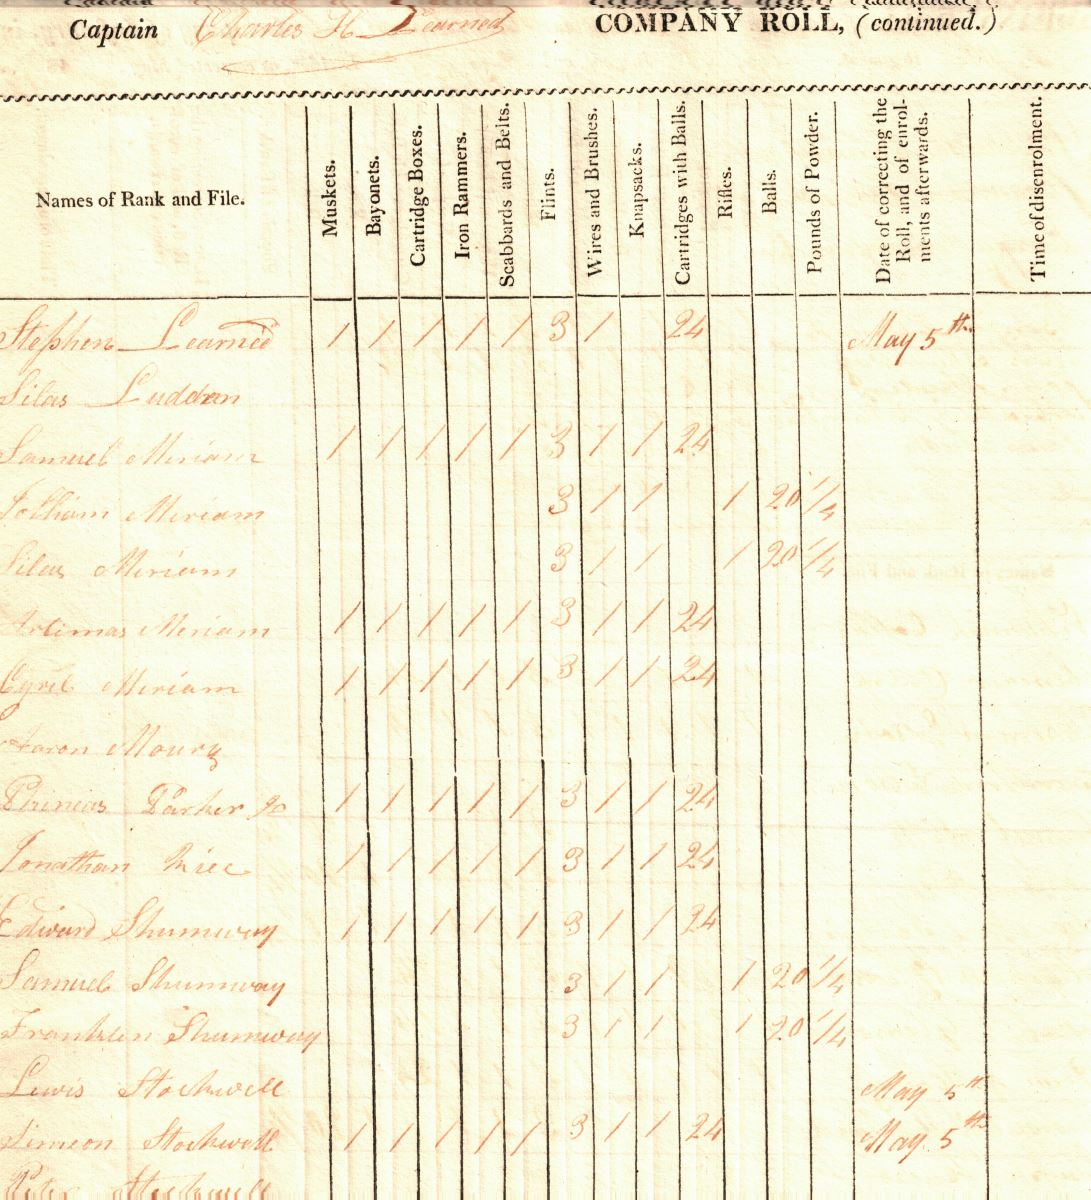 Captain Charles H Learned COMPANY ROLL, (continued.)
Names of Rank and File. Muskets. Bayonets. Cartridge Boxes. Iron Rammers. Scabbards and Belts. Flints. Wires and Brushes. Knapsacks. Cartridges with Balls. Rifles. Balls. Pounds of Powder. Date of correcting the Roll, and of enrolments afterwards. Time of disenrolment.
Stephen Learned 1 1 1 1 1 3 1 24 May 5th
Silas Luddan
Samuel Miriam 1 1 1 1 1 3 1 1 24
Jotham Miriam 3 1 1 1 20 1/4
Silas Miriam 3 1 1 1 20 1/4
Artimas Miriam 1 1 1 1 1 3 1 1 24
Cyril Miriam 1 1 1 1 1 3 1 1 24
Aaron Moury
Phineas Parker Jr 1 1 1 1 1 3 1 1 24
Jonathan Rice 1 1 1 1 1 3 1 1 24
Edward Shumway 1 1 1 1 1 3 1 1 24
Samuel Shumway 3 1 1 1 20 1/4
Franklin Shumway 3 1 1 1 20 1/4
Lewis Stockwell May 5th
Simeon Stockwell 1 1 1 1 1 3 1 1 24 May 5th
Stockwell